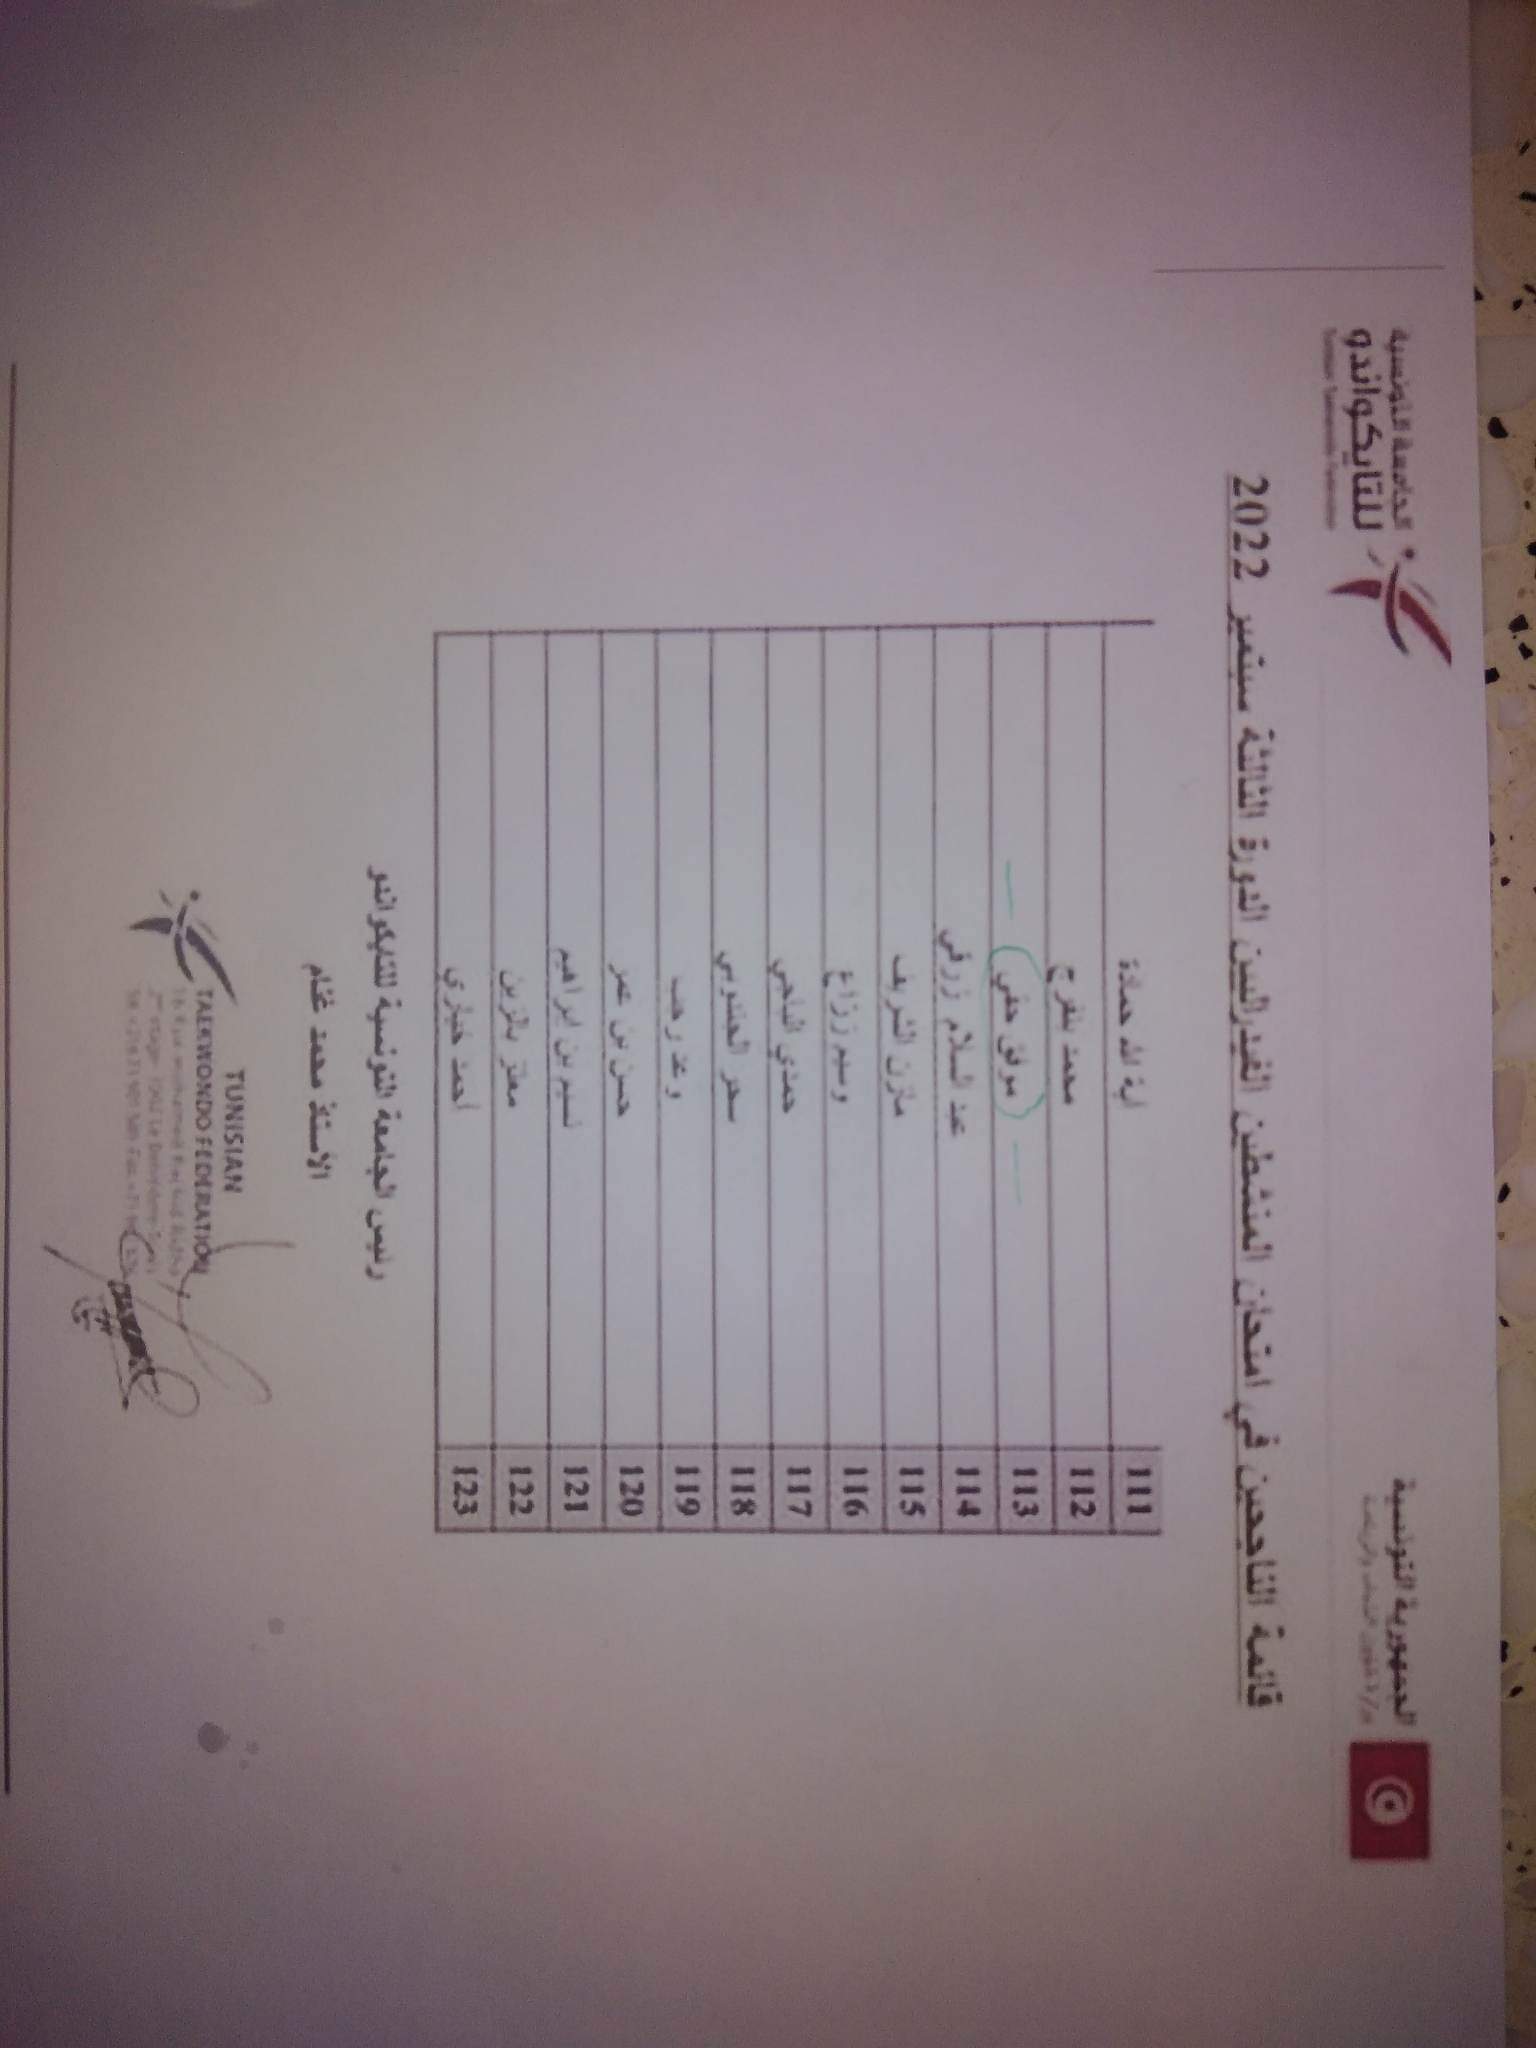 الجامعة التونسية
للتايكواندو
Tunisian Taekwondo Federation
الجمهورية التونسية
قائمة الناجحين في امتحان المنشطين الفيدراليين الدورة الثالثة سبتمبر 2022
111 اية الله حمادة
112 محمد بلفرج
113 موفق حفي
114 عبد السلام زرقي
115 مازن الشريف
116 وسيم زراع
117 حمدي الباجي
118 سحر الجندوبي
119 وعد رجب
120 حسن بن عمر
121 نسيم بن ابراهيم
122 معتز بالزين
123 احمد خياري
رئيس الجامعة التونسية للتايكواندو
الأستاذ محمد غنام
TUNISIAN
TAEKWONDO FEDERATION